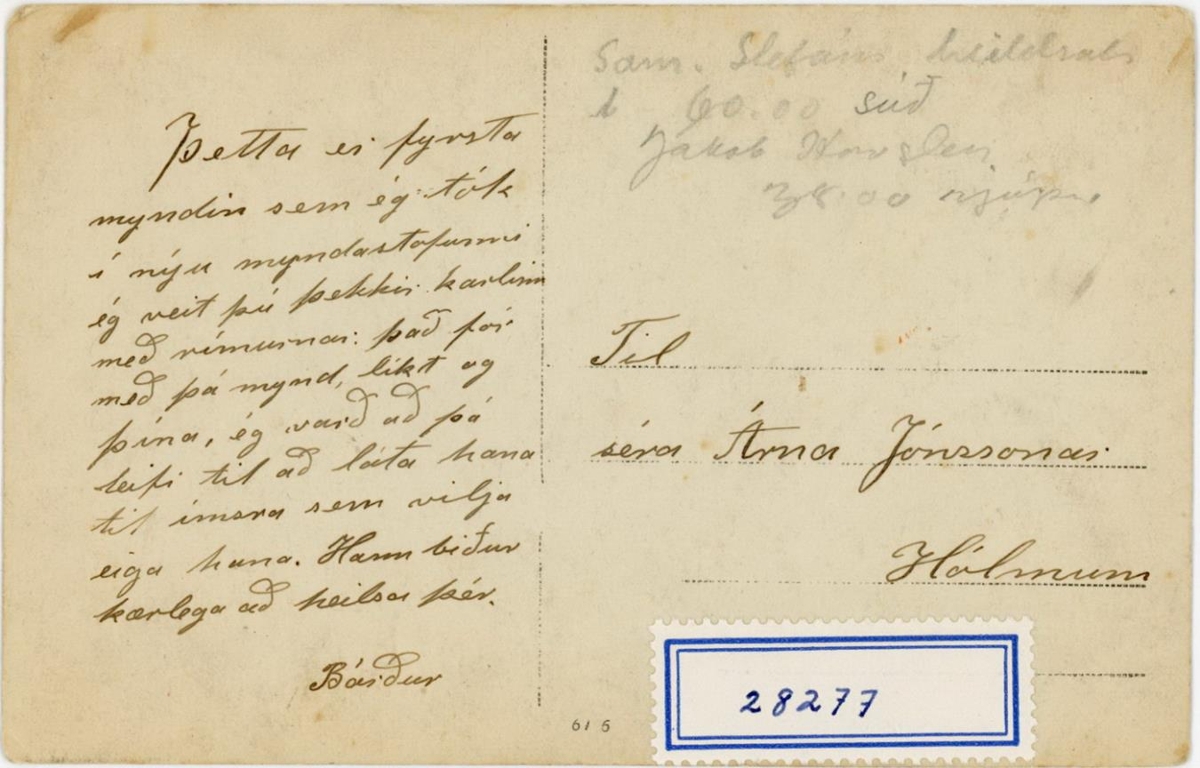 Þetta er fyrsta
myndin sem ég tók
í nýju myndastofunni
ég veit þú þekkir karlinn
með rímurnar: það fór
með þá mynd, líkt og
þína, ég varð að fá
leifi til að láta hana
til ímsra sem vilja
eiga hana. Hann biður
kærlega að heilsa þér.
Bárður
Sam. Stefáns
1 60.00 súð
Jakob
Til
séra Árna Jónssonar
Hólmum
28277
61 6